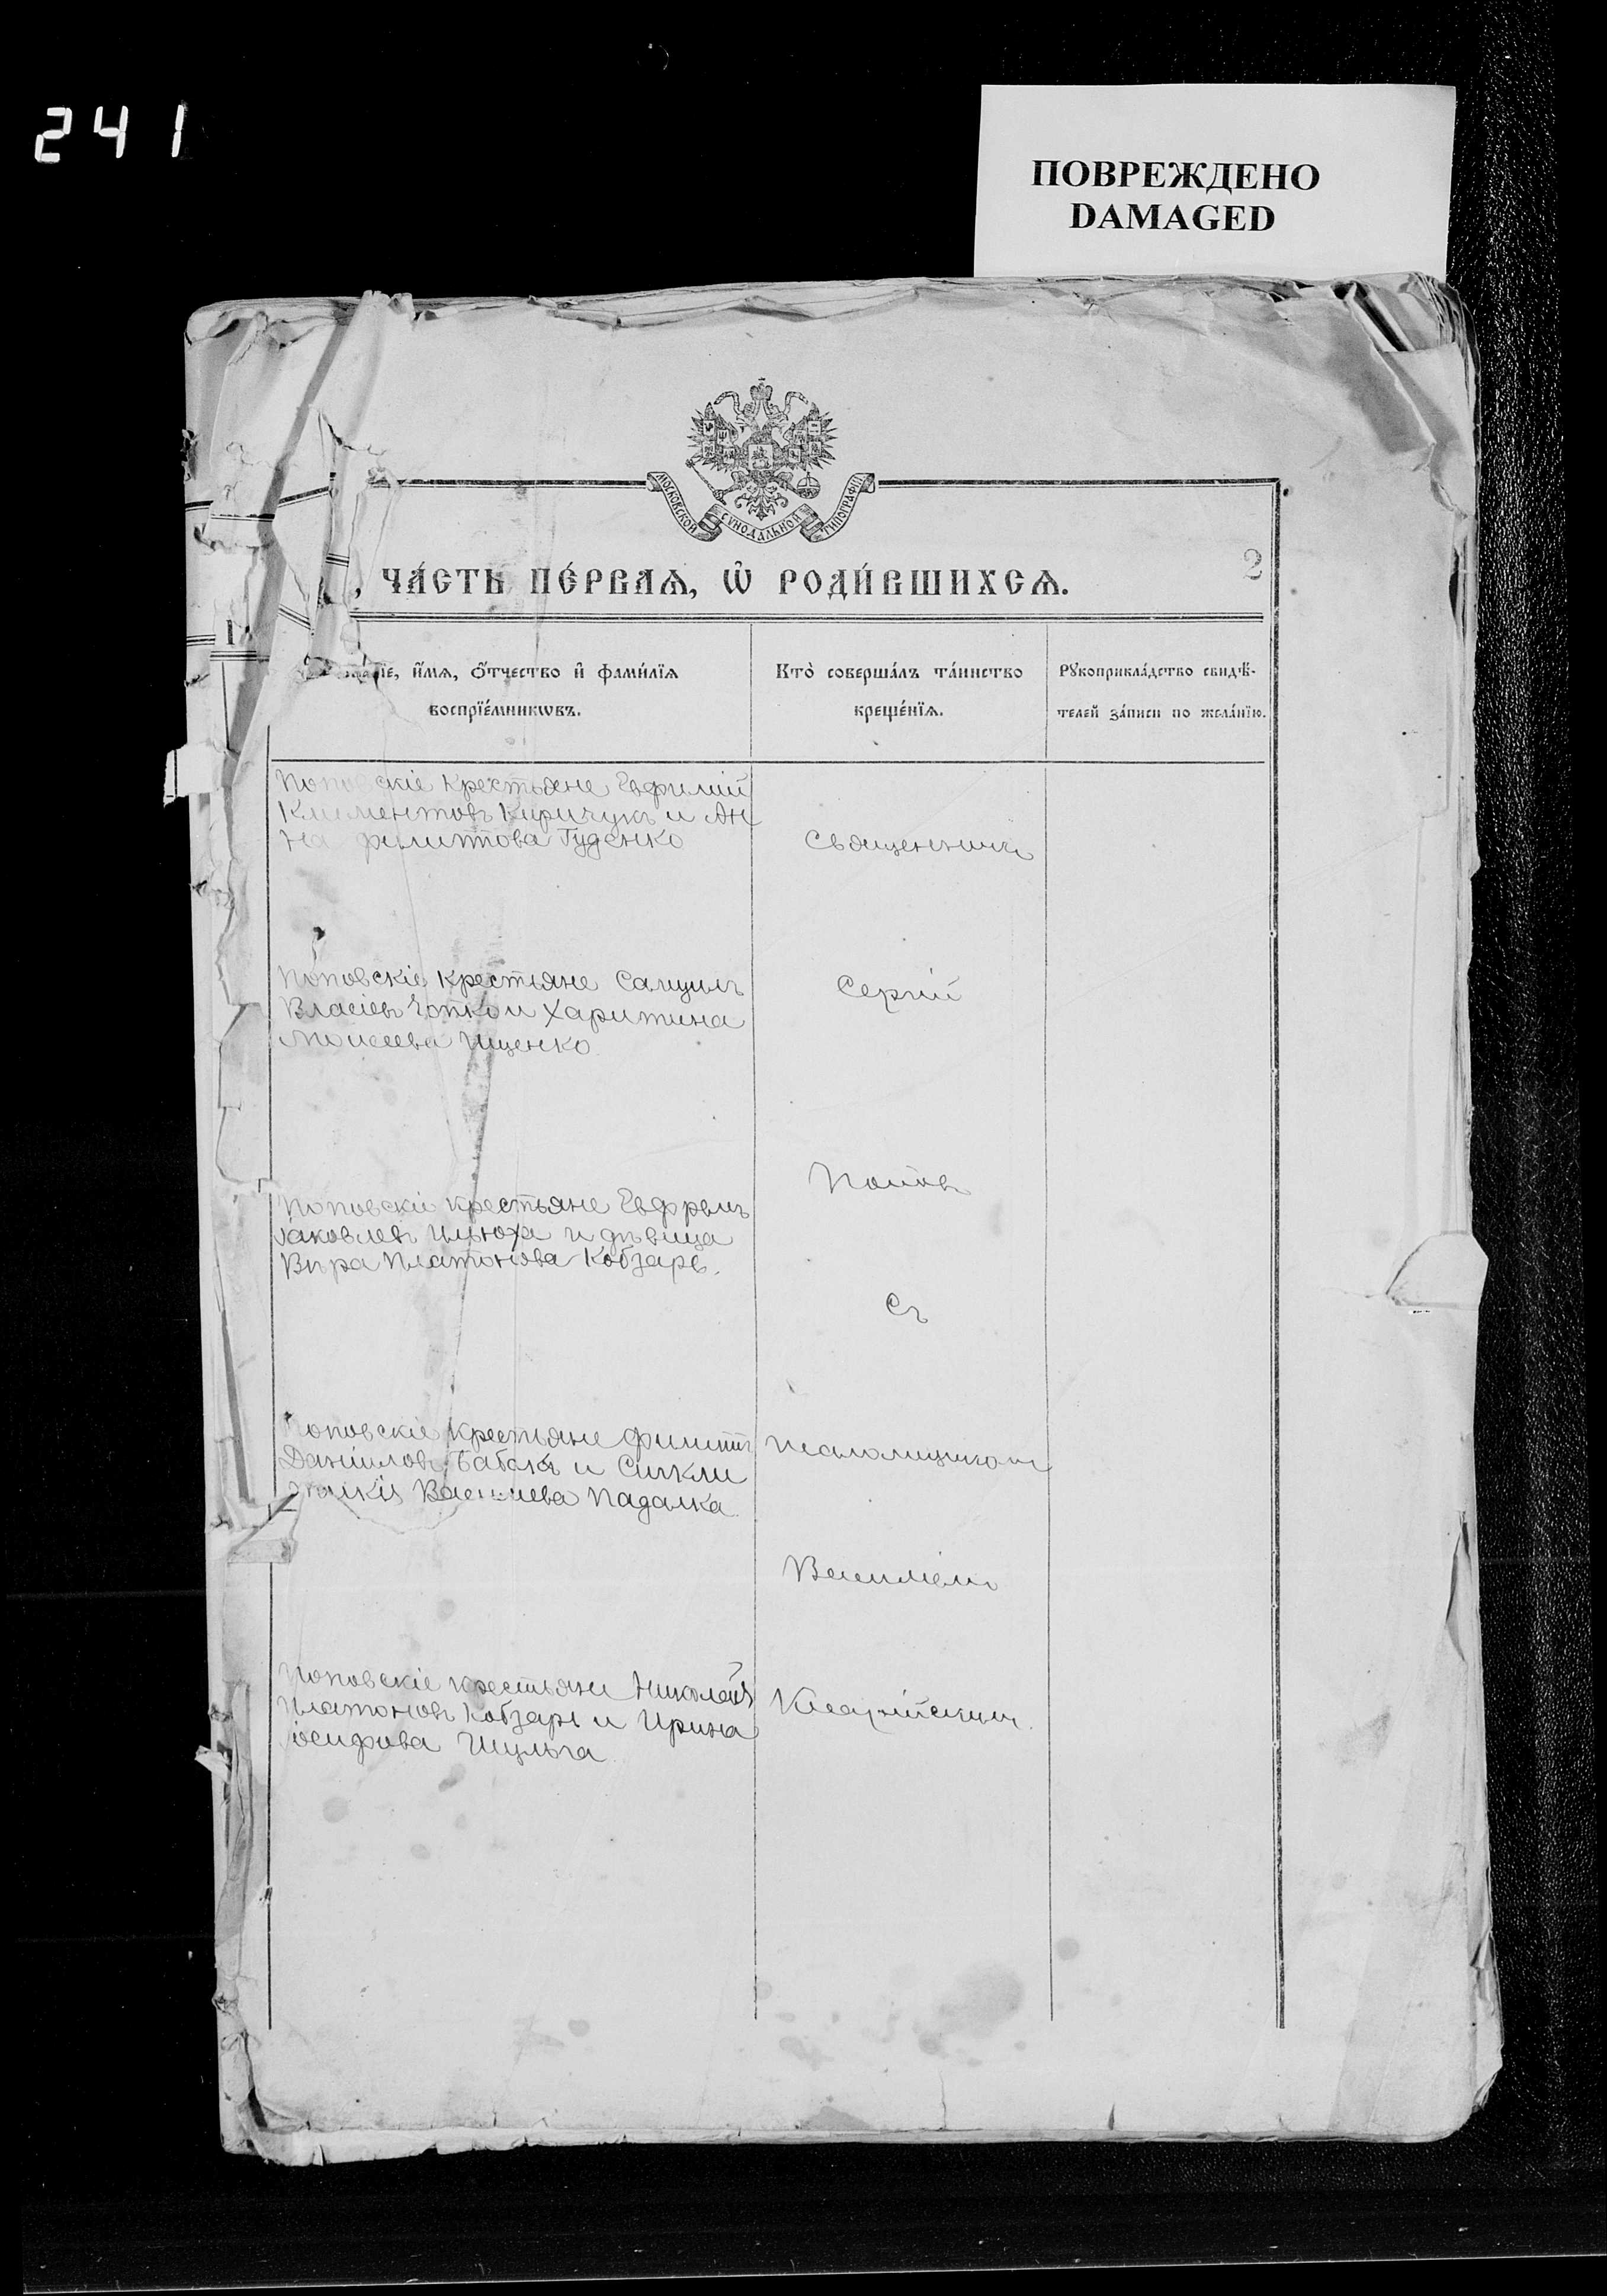 241
ПОВРЕЖДЕНО
DAMAGED
МОСКОВСКОЙ СѴНОДАЛЬНОЙ ТИПОГРАФІИ
2
ЧА́СТЬ ПЕ́РВАѦ, Ѡ҆ РОДИ́ВШИХСѦ.
І
И҆́МѦ, Ѻ҆́ТЧЕСТВО И҆ ФАМИ́ЛЇѦ
ВОСПРЇЕ́МНИКѠВЪ.
КТО̀ СОВЕРША́ЛЪ ТА́ИНСТВО
КРЕЩЕ́НЇѦ.
РꙊКОПРИКЛА́ДСТВО СВИДѢ́-
ТЕЛЕЙ ЗА́ПИСИ ПО ЖЕЛА́НЇЮ.
Поповскіе крестьяне Евфимій
Климентовъ Киричукъ и Ан
на Филиппова Гуденко
Священникъ
Поповскіе крестьяне Самуилъ
Власіевъ и Харитина
Моисеева Ищенко
Сергій
Поповскіе крестьяне Ефремъ
Іаковлевъ Илюха и дѣвица
Вѣра Платонова Кобзарь.
Поповъ
Съ
Поповскіе крестьяне Филиппъ
Даніиловъ Бабакъ и Синкли
тикія Васильева Падалка.
псаломщикомъ
Василіемъ
Поповскіе крестьяне Николай
Платоновъ Кобзарь и Ирина
Іосифова Шульга